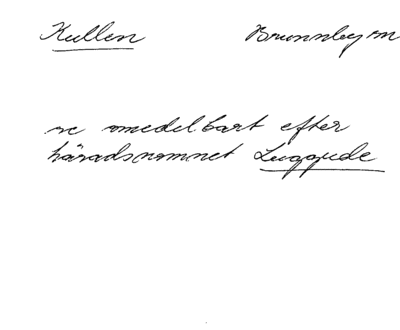 Kullen Brunnby sn
se omedelbart efter
häradsnamnet Luggude